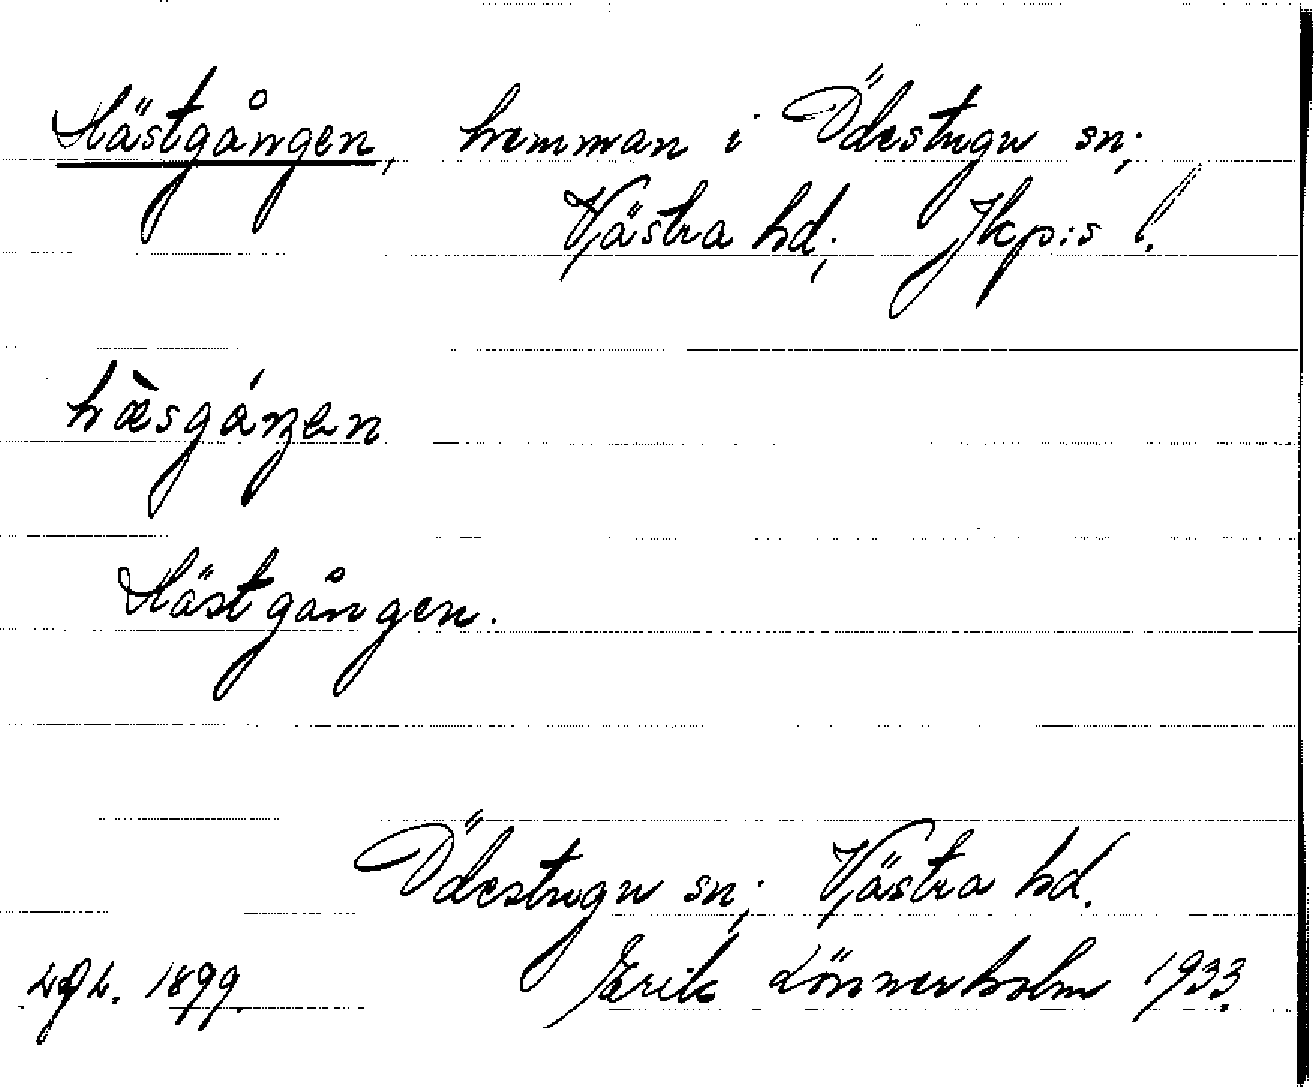 Hästgången, hemman i Ödestugu sn;
Västra hd; Jkp:s l.
hæ̀sgáŋen
Hästgången.
Ödestugu sn; Västra hd.
1899. Erik Lönnerholm 1933.